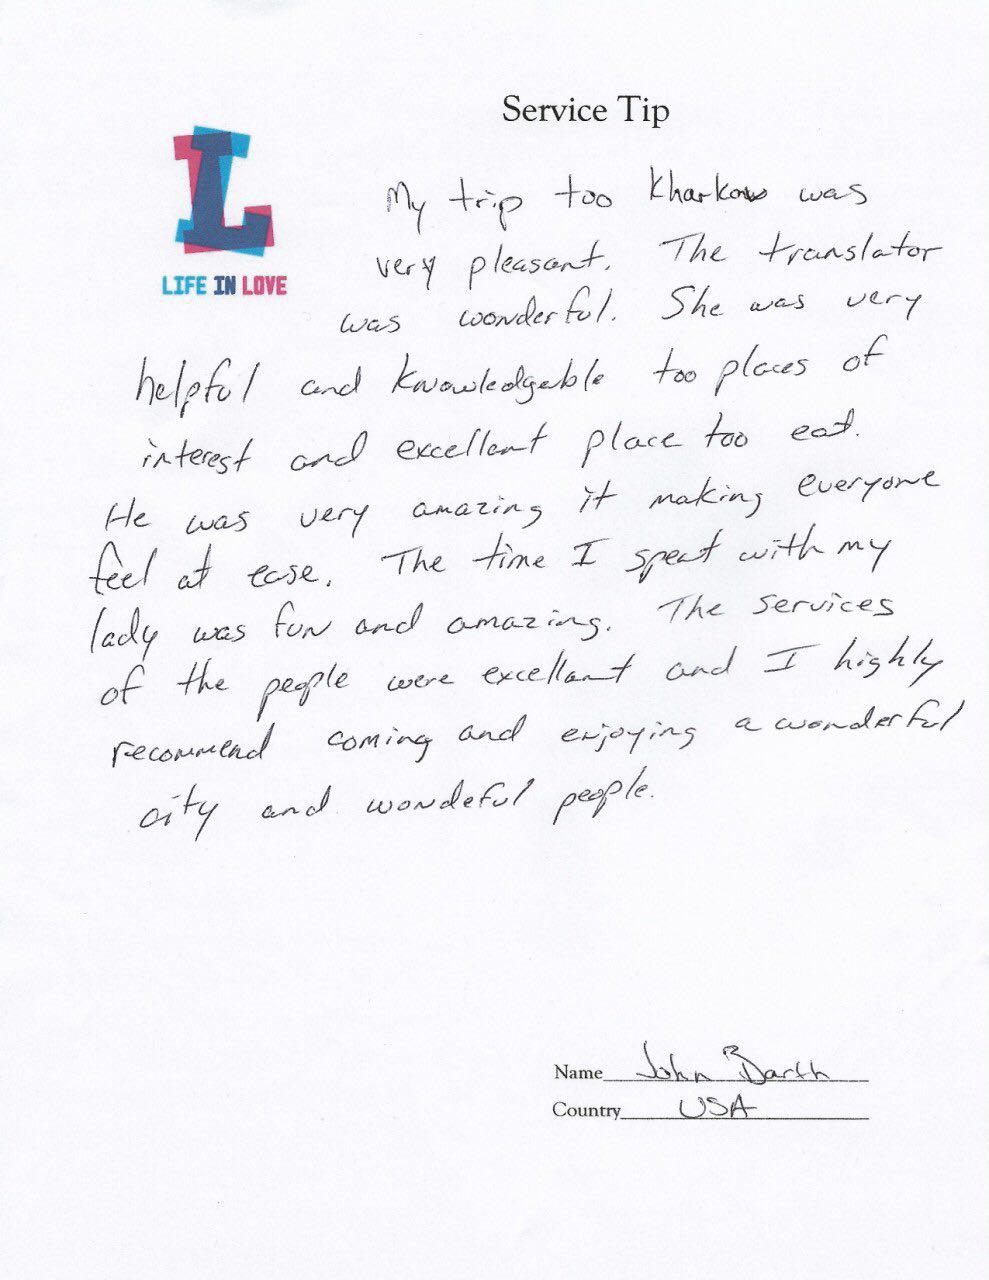 Service Tip
L
LIFE IN LOVE
My trip too Kharkow was
very pleasant. The translator
was wonderful. She was very
helpful and knowledgeable too places of
interest and excellent place too eat.
He was very amazing it making everyone
feel at ease. The time I spent with my
lady was fun and amazing. The services
of the people were excellant and I highly
recommend coming and enjoying a wonderful
city and wondeful people.
Name John Barth
Country USA